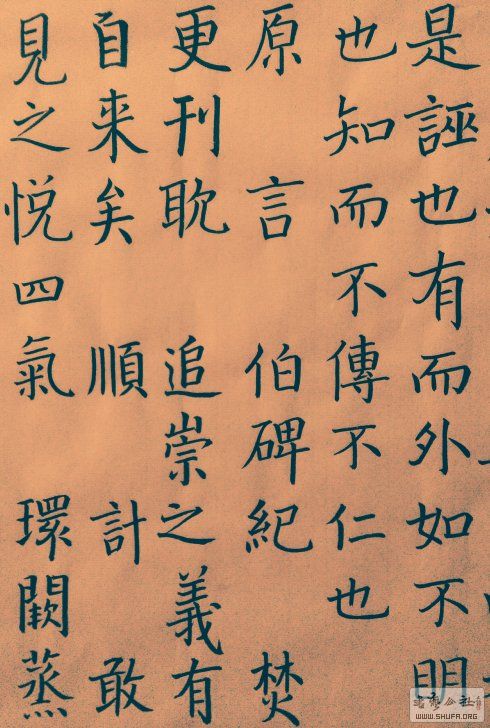 是誣也有而外如不明
也知而不傳不仁也
原言伯碑紀焚
更刊耽追崇之義有
自来矣順計敢
見之悅四氣環闕蒸
WWW.SHUFA.ORG